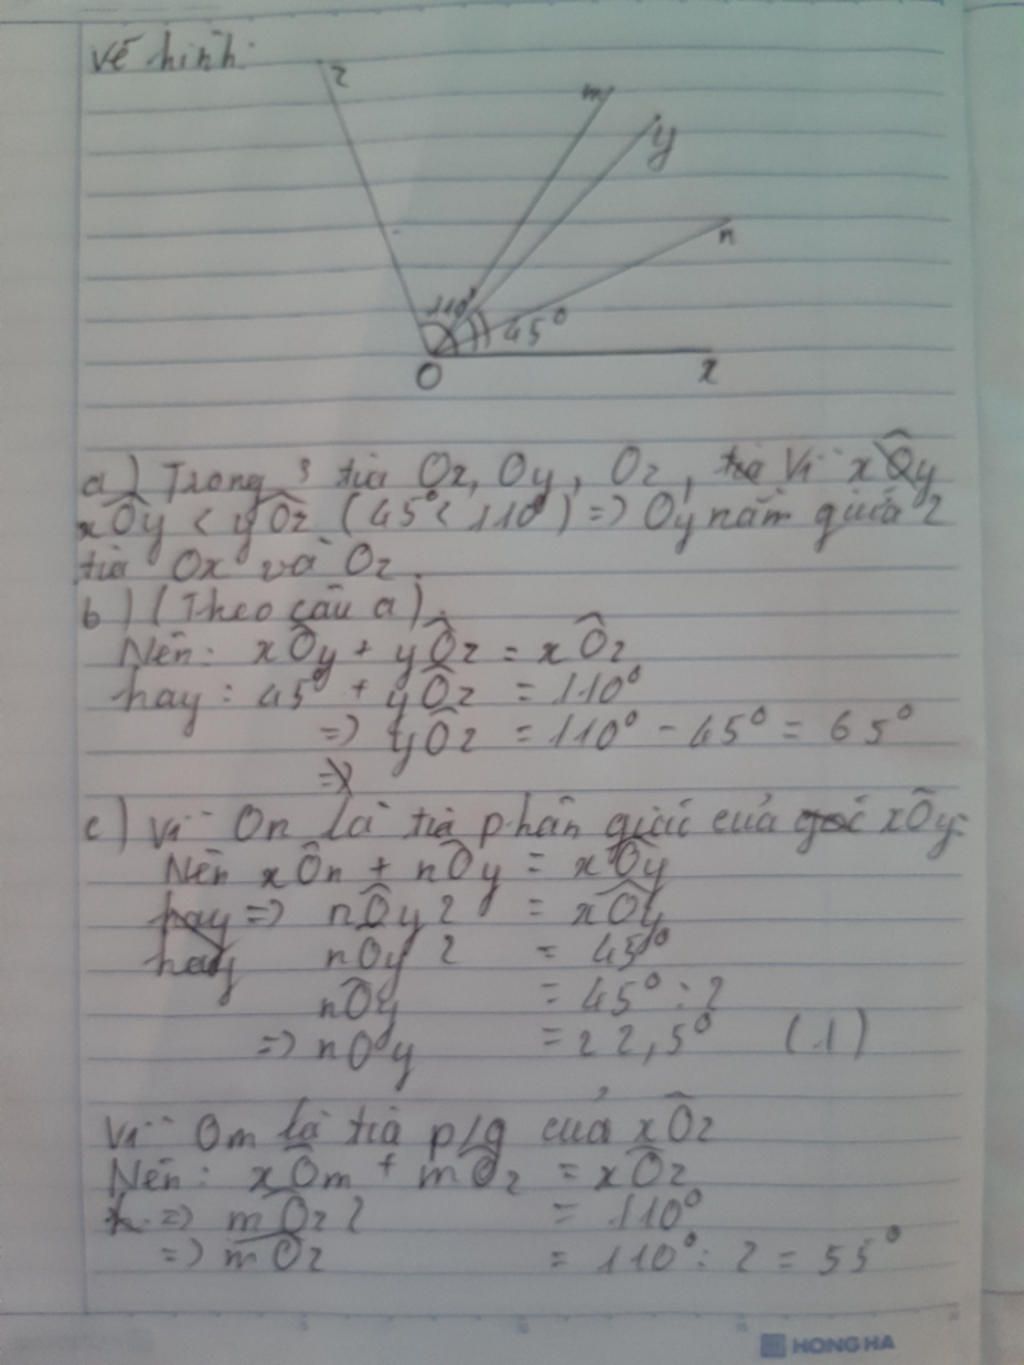 Vẽ hình:
z
m
y
n
110°
45°
O
x
a) Trong 3 tia Ox, Oy, Oz, Vì xÔy
xÔy < yÔz (45° < 110°) => Oy nằm giữa 2
tia Ox và Oz.
b) (Theo câu a).
Nên: xÔy + yÔz = xÔz
hay: 45° + yÔz = 110°
=> yÔz = 110° - 45° = 65°
=>
c) Vì On là tia phân giác của góc xÔy.
Nên xÔn + nÔy = xÔy
hay => nÔy2 = xÔy
hay nOy 2 = 45°
nÔy = 45° : 2
=> nOy = 22,5° (1)
Vì Om là tia p/g của xÔz
Nên: xÔm + mÔz = xÔz
=> mÔz2 = 110°
=> mÔz = 110° : 2 = 55°
HONG HA